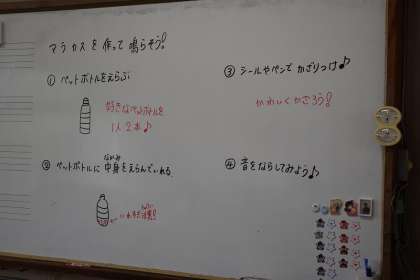 マラカスを作って鳴らそう!
① ペットボトルをえらぶ
好きなペットボトルを
1人2本♪
② ペットボトルに中身をえらんでいれる
なかみ
いれすぎ注意!!
③ シールやペンでかざりつけ♪
かわいくかざろう!
④ 音をならしてみよう♪